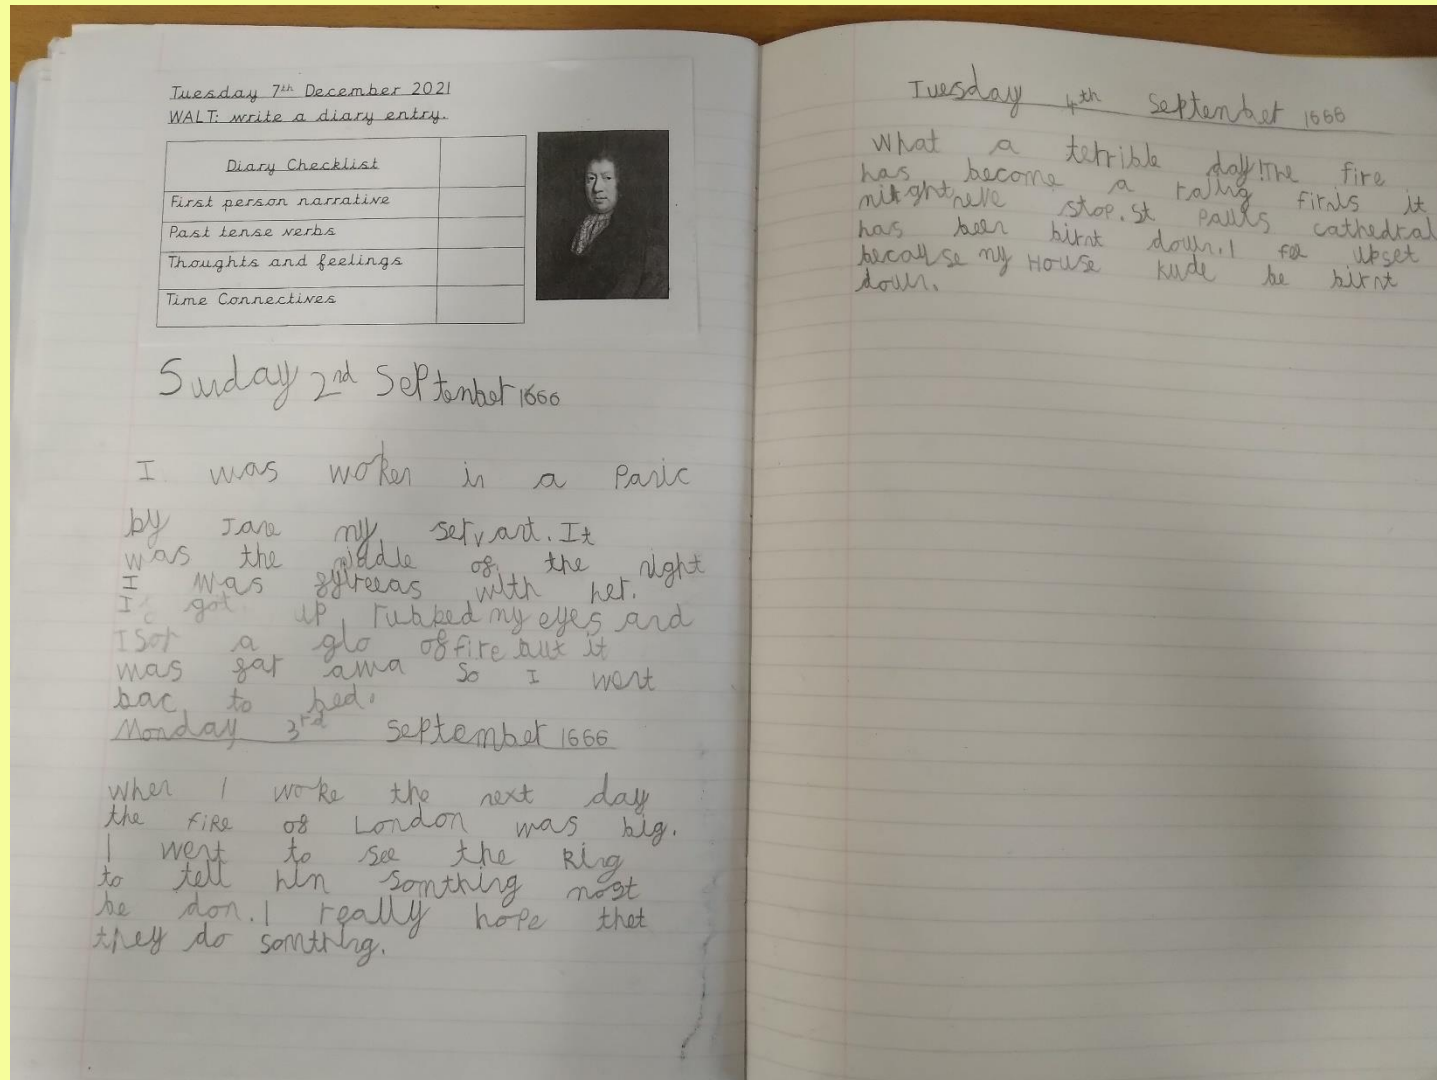 Tuesday 7th December 2021
WALT: write a diary entry.
Diary Checklist
First person narrative
Past tense verbs
Thoughts and feelings
Time Connectives
Sunday 2nd September 1666
I was woken in a Panic
by Jane my servant. It
was the middle of the night
I was with her.
I got up, rubbed my eyes and
I sor a glo of fire but it
was far awa so I went
bac to bed.
Monday 3rd September 1666
when I woke the next day
the fire of London was big.
I went to see the king
to tell him somthing most
be don. I really hope thet
they do somthing.
Tuesday 4th September 1666
What a terrible day! The fire
has become a raing
stop. St Pauls cathedral
has been birnt down. I upset
because my House kude be birnt
down.